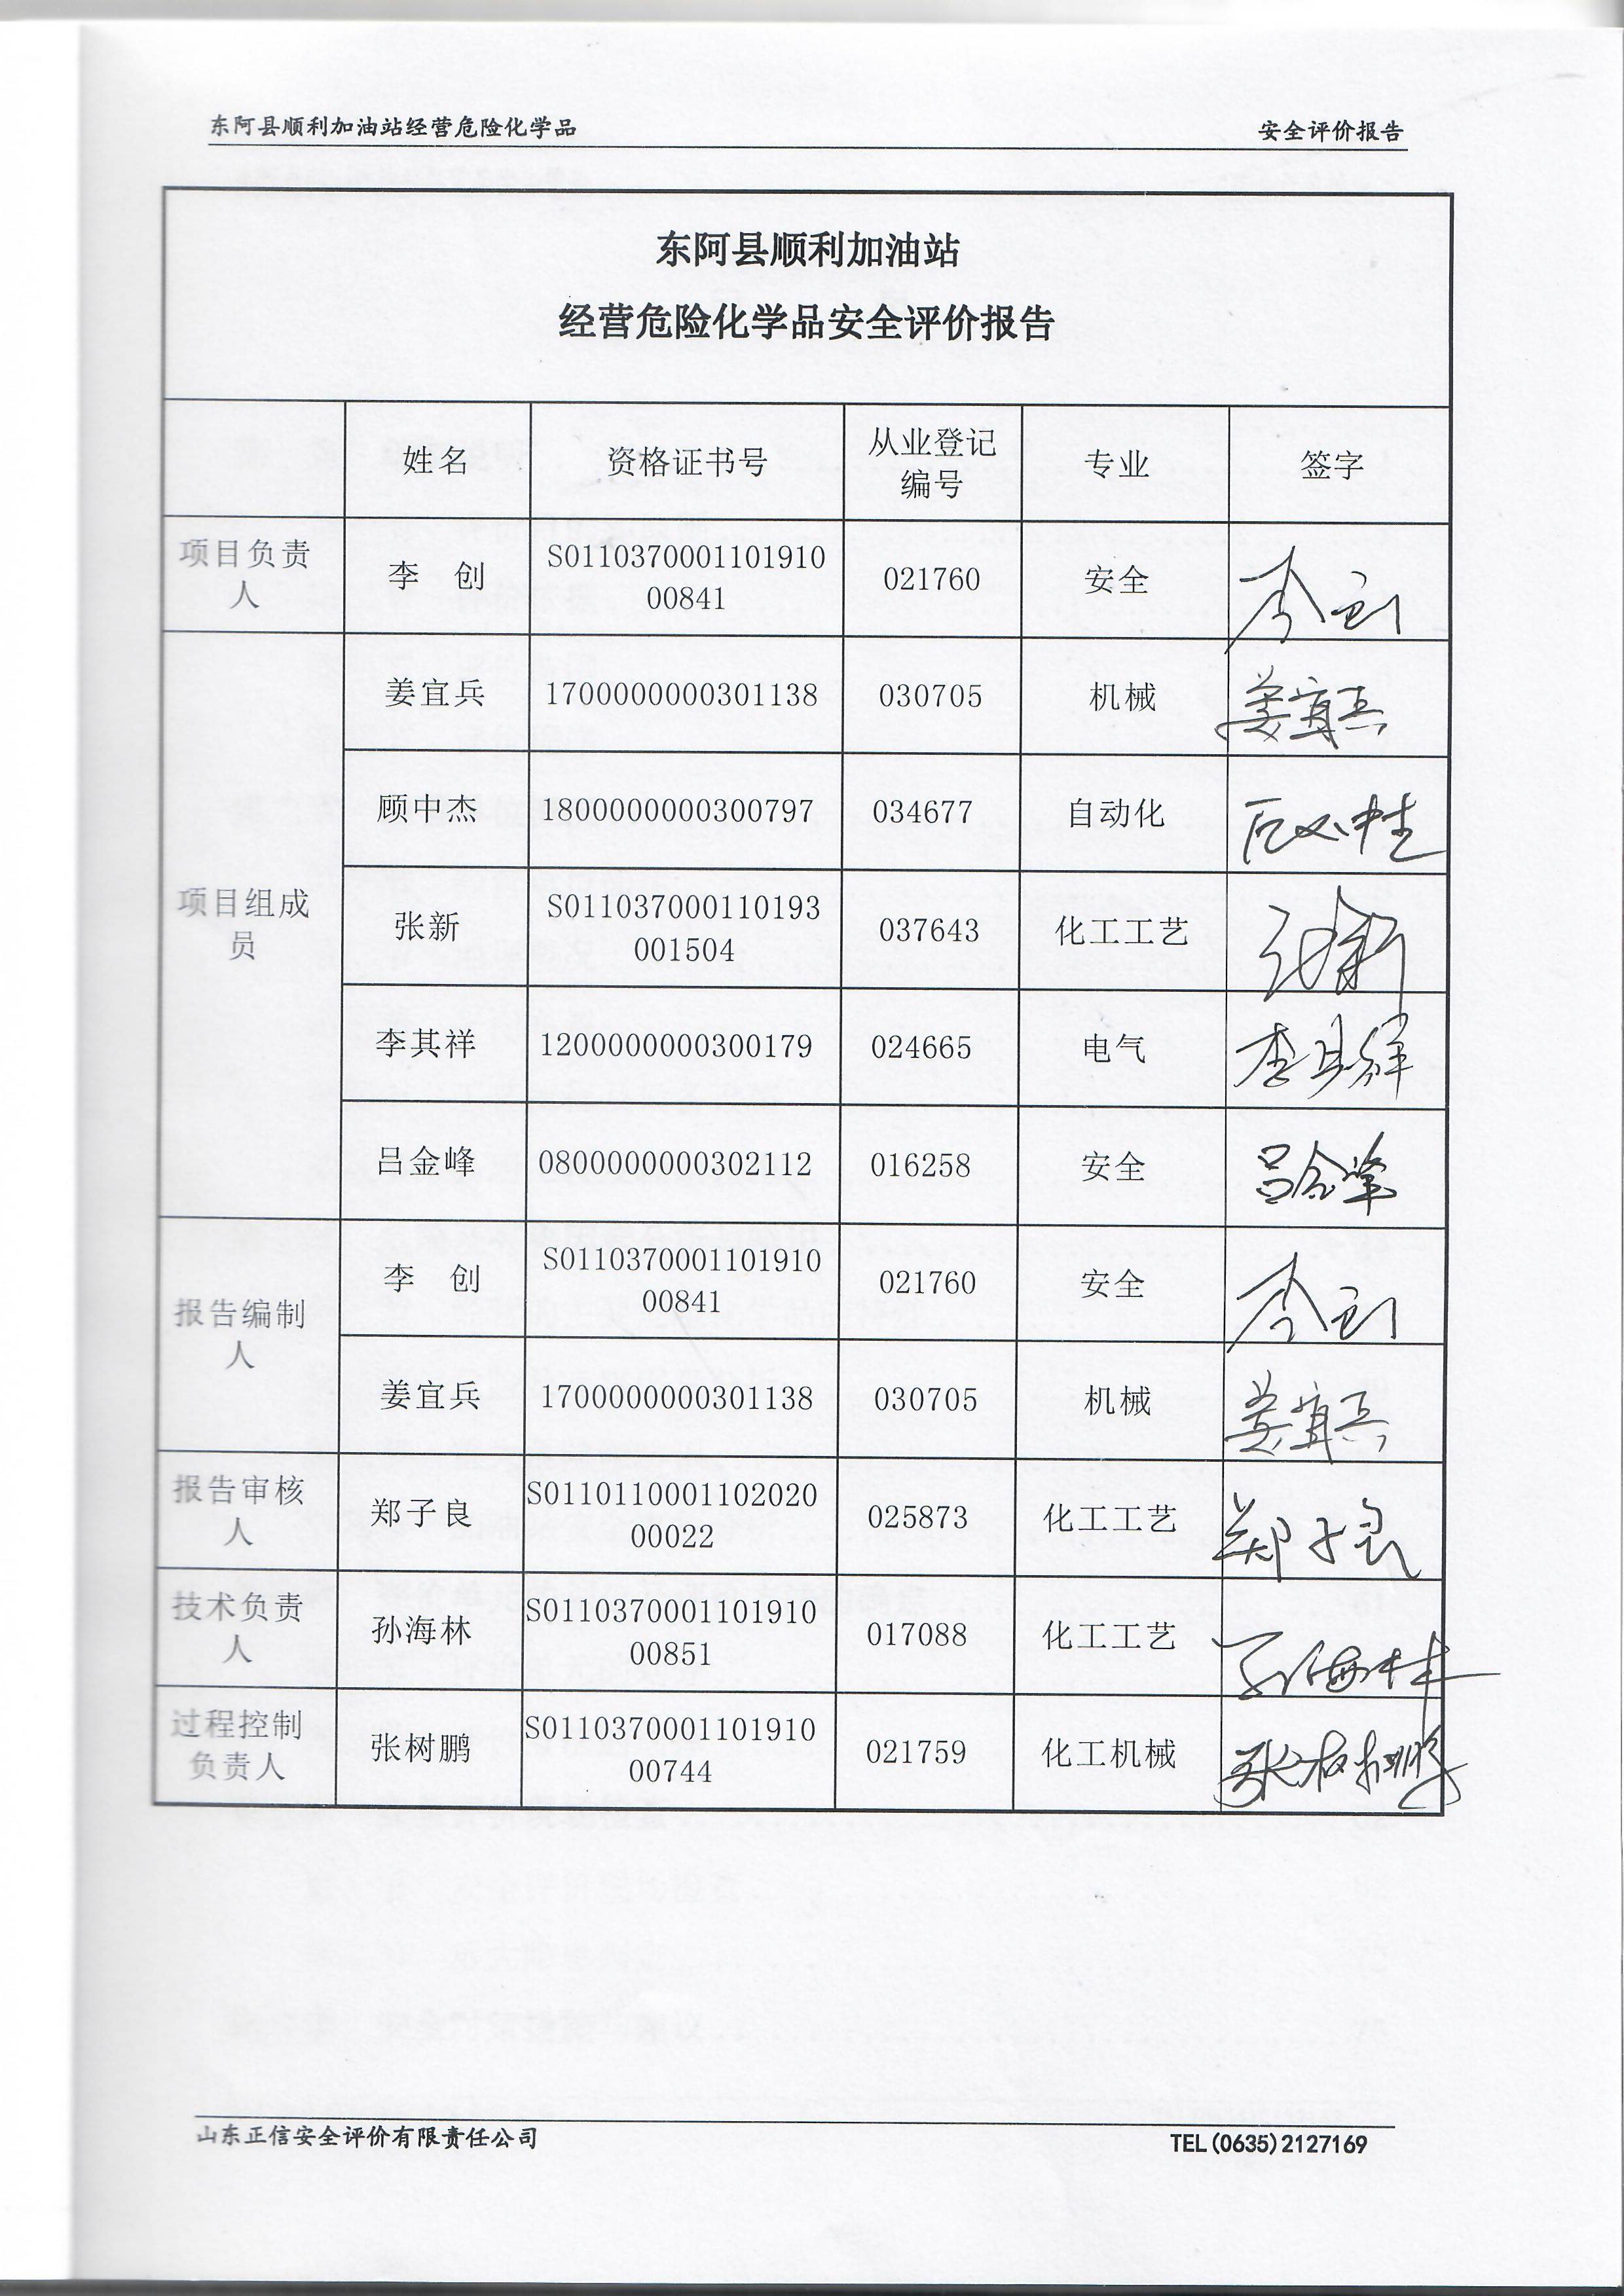 东阿县顺利加油站经营危险化学品 安全评价报告
东阿县顺利加油站
经营危险化学品安全评价报告
姓名 资格证书号 从业登记编号 专业 签字
项目负责人 李 创 S011037000110191000841 021760 安全 李创
项目组成员 姜宜兵 1700000000301138 030705 机械 姜宜兵
顾中杰 1800000000300797 034677 自动化 顾中杰
张新 S011037000110193001504 037643 化工工艺 张新
李其祥 1200000000300179 024665 电气 李其祥
吕金峰 0800000000302112 016258 安全 吕金峰
报告编制人 李 创 S011037000110191000841 021760 安全 李创
姜宜兵 1700000000301138 030705 机械 姜宜兵
报告审核人 郑子良 S011011000110202000022 025873 化工工艺 郑子良
技术负责人 孙海林 S011037000110191000851 017088 化工工艺 孙海林
过程控制负责人 张树鹏 S011037000110191000744 021759 化工机械 张树鹏
山东正信安全评价有限责任公司 TEL(0635)2127169